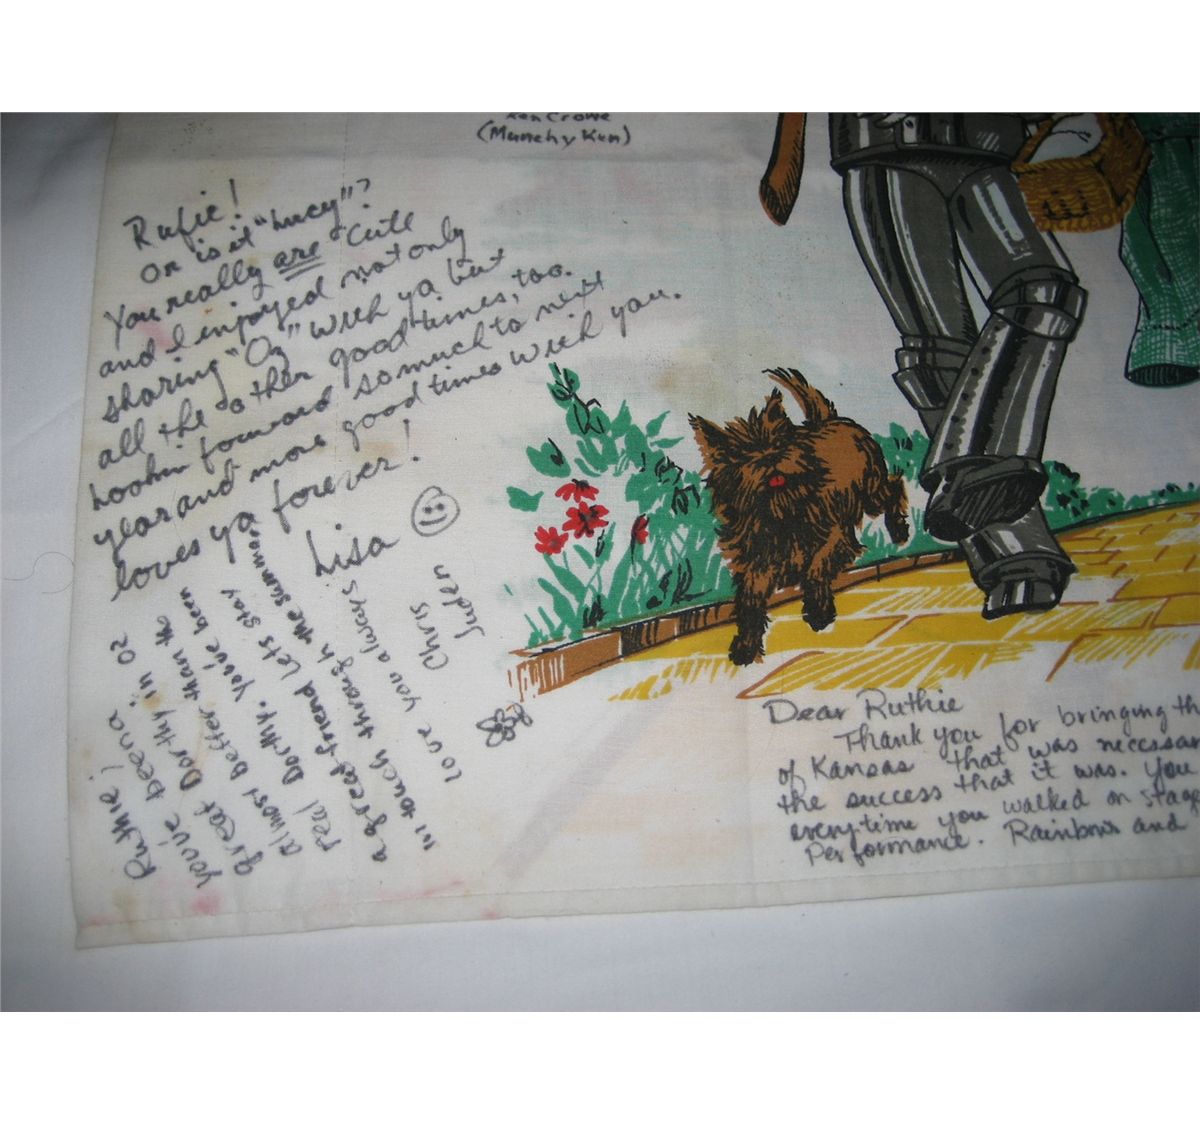 Ken Crowe
(Munchy Kin)
Rufie!
Or is it "Lucy"?
You really are "cute
and I enjoyed not only
sharing "Oz" with ya but
all the other good times, too.
Lookin forward so much to next
year and more good times with you.
loves ya forever!
Lisa
Ruthie!
you've beena
great Dorthy in OZ
almost better than the
real Dorthy. you've been
a great friend lets stay
in touch through the summer
love you always
Chris
Juden
Dear Ruthie
Thank you for bringing th
of Kansas that was necessar
the success that it was. You
everytime you walked on stage
Performance. Rainbows and